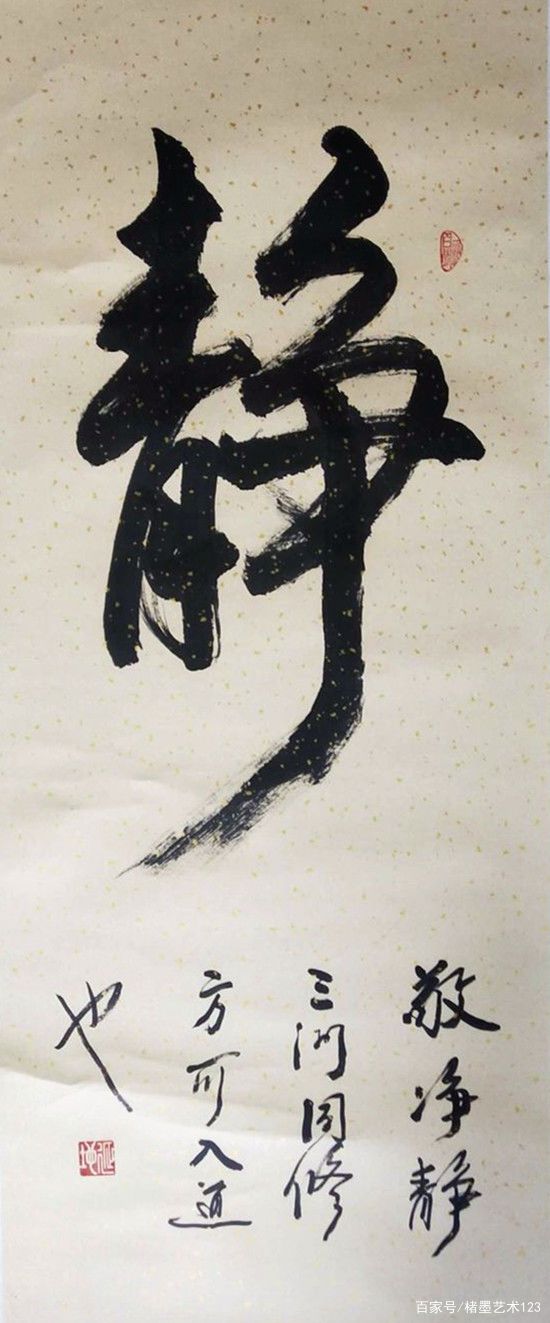 静
敬净静
三门同修
方可入道
也
百家号/楮墨艺术123